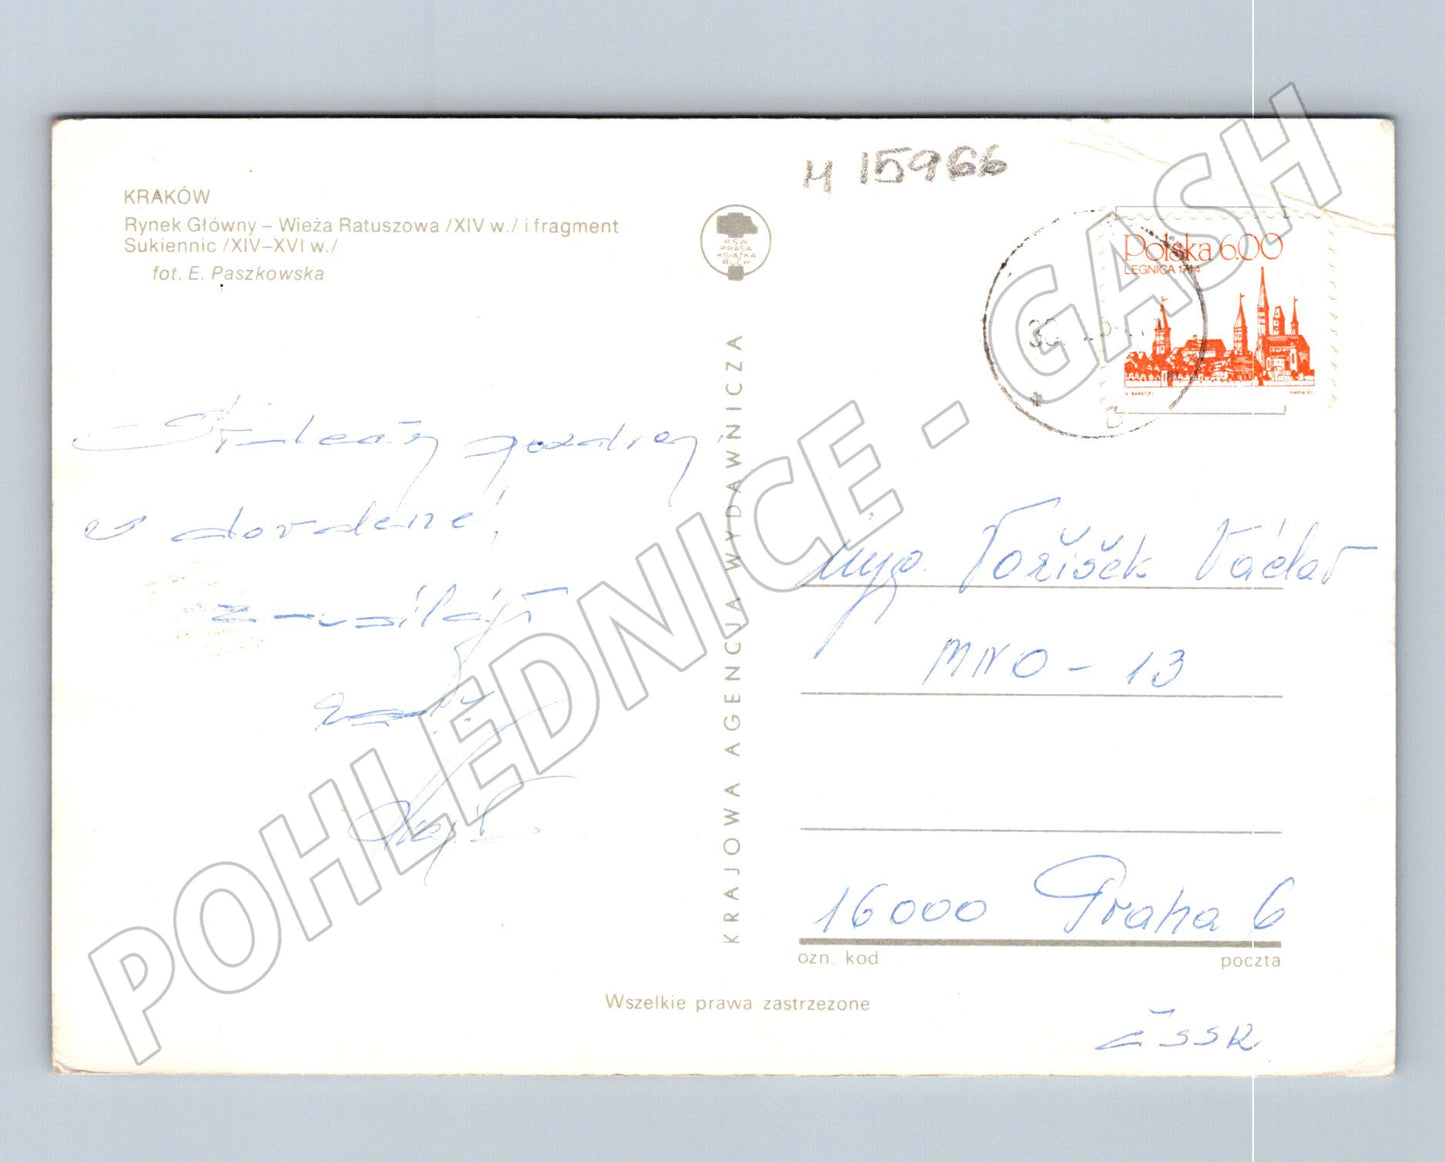 KRAKÓW
Rynek Główny – Wieża Ratuszowa /XIV w./ i fragment
Sukiennic /XIV–XVI w./
fot. E. Paszkowska
pozdrav
z dovolené
zasílají
KRAJOWA AGENCJA WYDAWNICZA
RSW
PRASA
KSIĄŻKA
RUCH
M 15966
Polska 6.00
LEGNICA 1744
30
Voříšek Václav
MNO - 13
16000 Praha 6
ozn. kod poczta
Wszelkie prawa zastrzeżone
ČSSR
POHLEDNICE - GASH